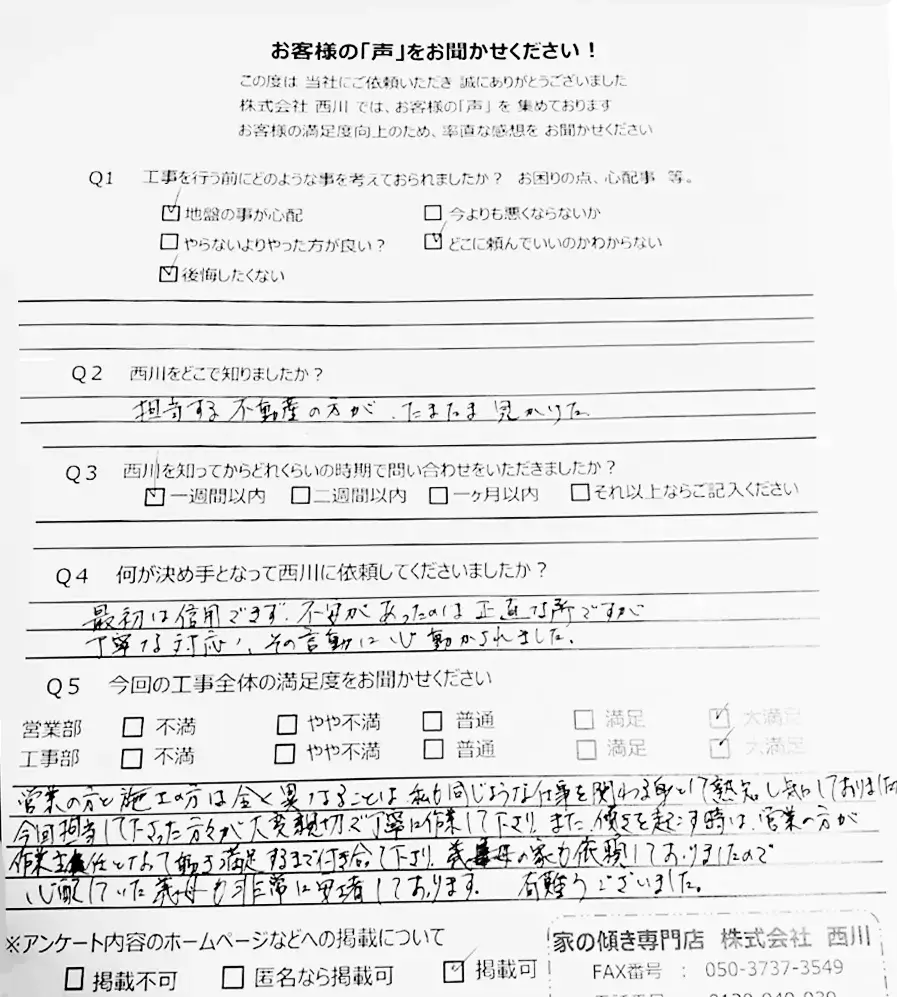 お客様の「声」をお聞かせください！
この度は 当社にご依頼いただき 誠にありがとうございました
株式会社 西川 では、お客様の「声」を 集めております
お客様の満足度向上のため、率直な感想を お聞かせください
Q1 工事を行う前にどのような事を考えておられましたか？ お困りの点、心配事 等。
☑ 地盤の事が心配 □ 今よりも悪くならないか
□ やらないよりやった方が良い？ ☑ どこに頼んでいいのかわからない
☑ 後悔したくない
Q2 西川をどこで知りましたか？
担当する不動産の方が、たまたま見かけた。
Q3 西川を知ってからどれくらいの時期で問い合わせをいただきましたか？
☑ 一週間以内 □ 二週間以内 □ 一ヶ月以内 □ それ以上ならご記入ください
Q4 何が決め手となって西川に依頼してくださいましたか？
最初は信用できず、不安があったのは正直な所ですが
丁寧な対応、その言動に心動かされました。
Q5 今回の工事全体の満足度をお聞かせください
営業部 □ 不満 □ やや不満 □ 普通 □ 満足 ☑ 大満足
工事部 □ 不満 □ やや不満 □ 普通 □ 満足 ☑ 大満足
営業の方と施工の方は全く異なることは私も同じような仕事を関わる身として熟知しておりました
今回担当して下さった方々が大変親切で丁寧に作業して下さり、また、傾きを起こす時は、営業の方が
作業主任となって満足するまで付き合って下さり、義母の家も依頼しておりましたので
心配していた義母も非常に安堵しております。 有難うございました。
※アンケート内容のホームページなどへの掲載について
□ 掲載不可 □ 匿名なら掲載可 ☑ 掲載可
家の傾き専門店 株式会社 西川
FAX番号 ： 050-3737-3549